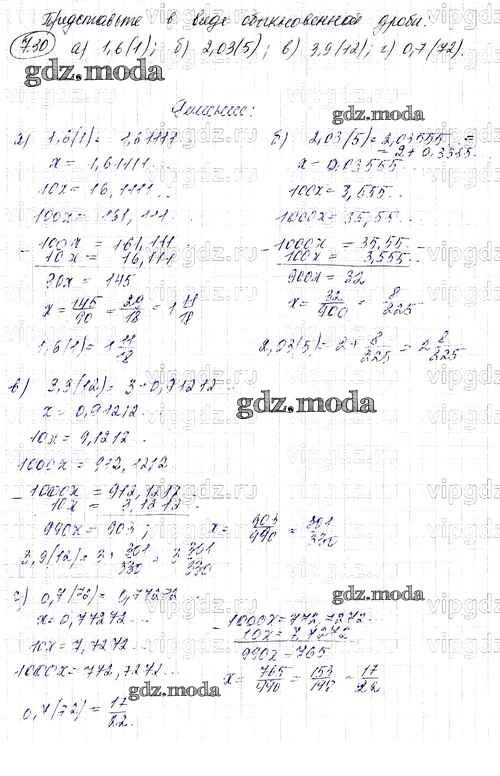 Представьте в виде обыкновенной дроби:
7.30 а) 1,6(1); б) 2,03(5); в) 3,9(12); г) 0,7(72).
gdz.moda
Решение:
а) 1,6(1) = 1,61111
x = 1,61111...
10x = 16,1111...
100x = 161,111...
- 100x = 161,111
10x = 16,111
90x = 145
x = 145/90 = 29/18 = 1 11/18
1,6(1) = 1 11/18
б) 2,03(5) = 2,03555 =
= 2 + 0,3555.
x = 0,03555...
100x = 3,555...
1000x = 35,55...
- 1000x = 35,55...
100x = 3,555...
900x = 32
x = 32/900 = 8/225
2,03(5) = 2 + 8/225 = 2 8/225
в) 3,9(12) = 3 + 0,91212...
x = 0,91212...
gdz.moda
10x = 9,1212...
1000x = 912,1212
- 1000x = 912,1212...
10x = 9,1212...
990x = 903;
x = 903/990 = 301/330
3,9(12) = 3 + 301/330 = 3 301/330
gdz.moda
г) 0,7(72) = 0,77272...
x = 0,77272...
10x = 7,7272...
1000x = 772,7272...
- 1000x = 772,7272...
10x = 7,7272
990x = 765
x = 765/990 = 153/198 = 17/22
gdz.moda
0,7(72) = 17/22.